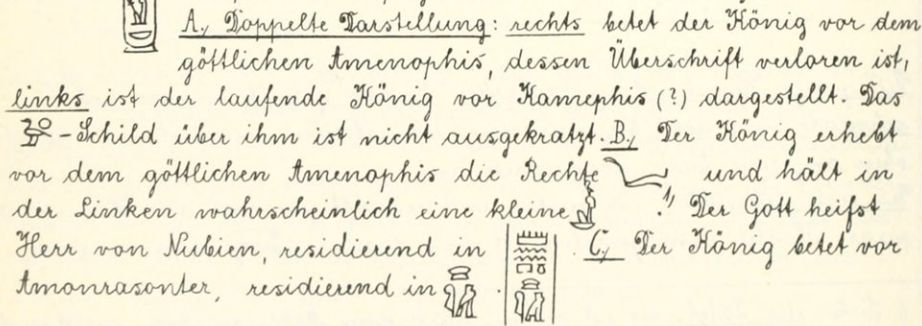 A., Doppelte Darstellung: rechts betet der König vor dem
göttlichen Amenophis, dessen Überschrift verloren ist,
links ist der laufende König vor Kamephis (?) dargestellt. Das
-Schild über ihm ist nicht ausgekratzt. B., Der König erhebt
vor dem göttlichen Amenophis die Rechte und hält in
der Linken wahrscheinlich eine kleine . Der Gott heifst
Herr von Nubien, residierend in . C., Der König betet vor
Amonrasonter, residierend in .